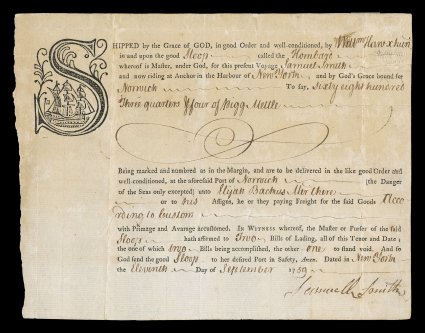 SHIPPED by the Grace of GOD, in good Order and well-conditioned, by Willm Hawxhurst
in and upon the good Sloop called the
whereof is Master, under God, for this present Voyage Samuel Smith
and now riding at Anchor in the Harbour of New York and by God's Grace bound for
Norwich To say, Sixty eight hundred
Three quarters & four of Pigg Mettle
Being marked and numbered as in the Margin, and are to be delivered in the like good Order and
well-conditioned, at the aforesaid Port of Norwich [the Danger
of the Seas only excepted] unto Elijah Backus Merchant
or to his Assigns, he or they paying Freight for the said Goods Acco
rding to Custom
with Primage and Avarage accustomed. In WITNESS whereof, the Master or Purser of the said
Sloop hath affirmed to Two Bills of Lading, all of this Tenor and Date;
the one of which two Bills being accomplished, the other one to stand void. And so
God send the good Sloop to her desired Port in Safety, Amen. Dated in New York
the Eleventh Day of September 1759
Samuell Smith